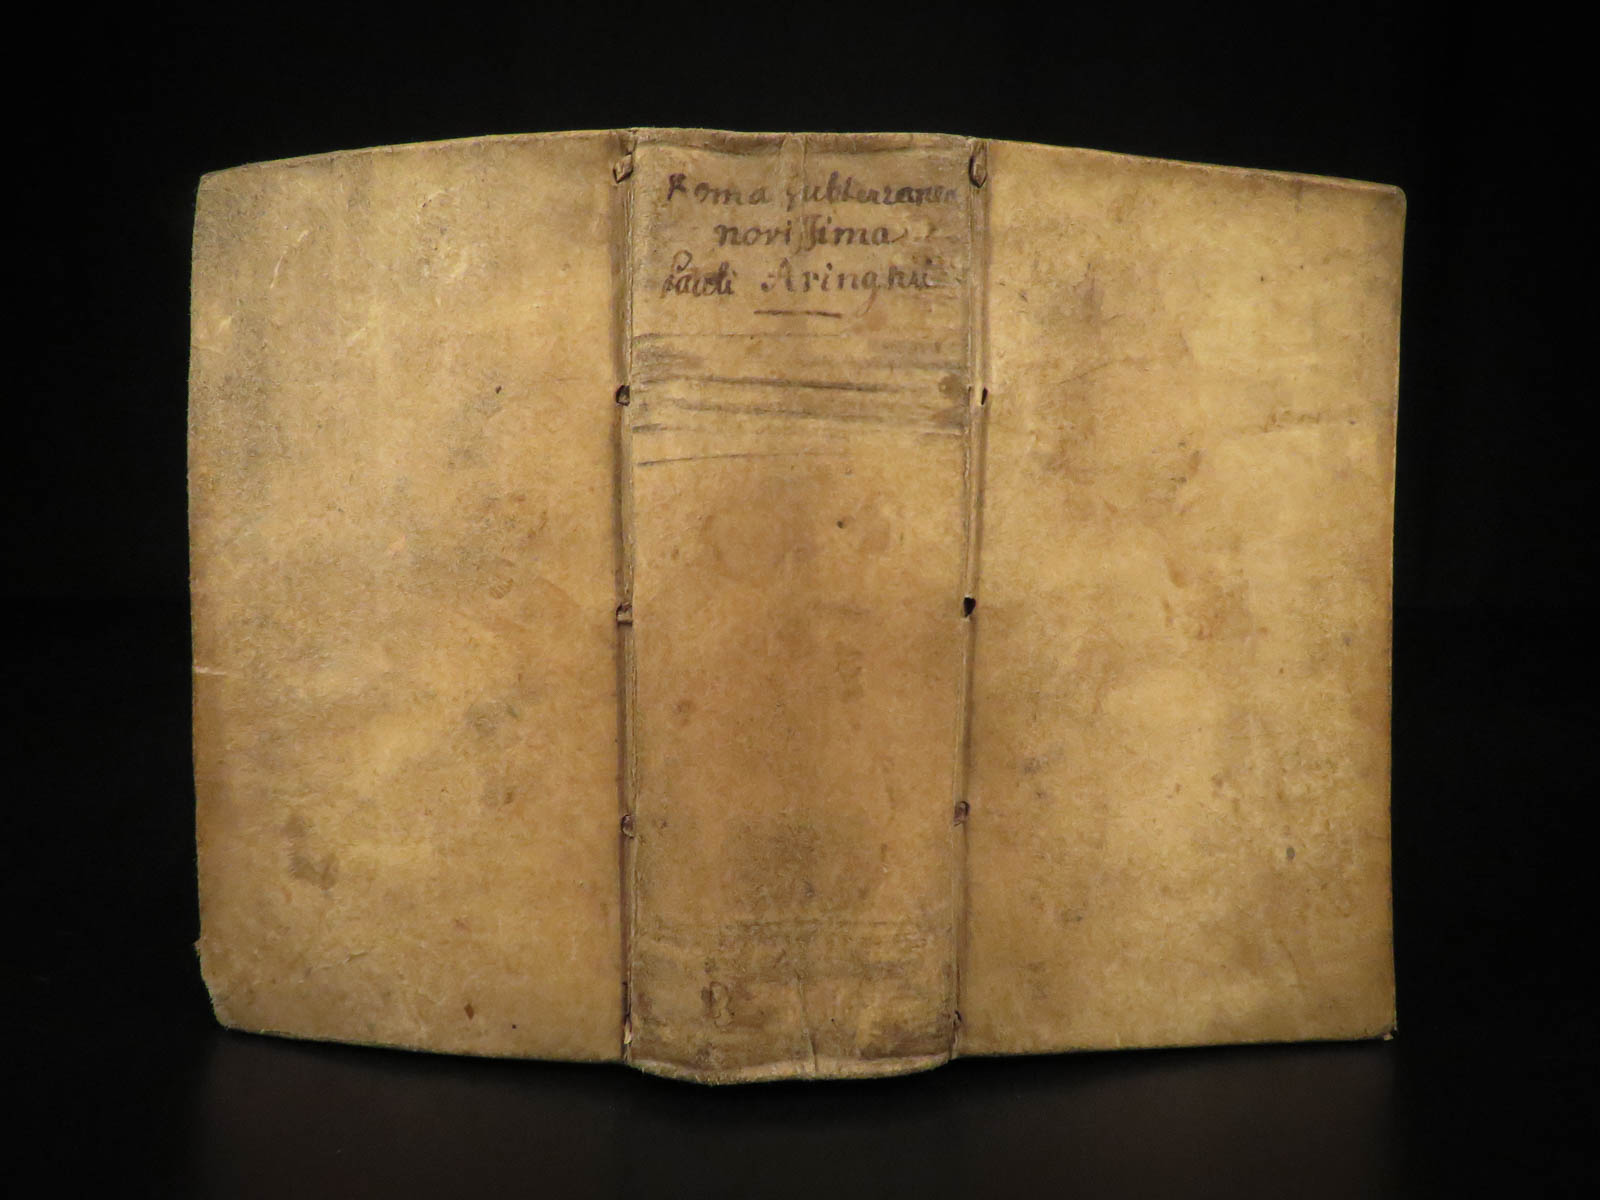 Roma subterranea
novissima
Pauli Aringhii